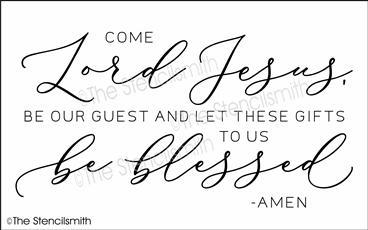 COME
Lord Jesus,
BE OUR GUEST AND LET THESE GIFTS
TO US
be blessed
-AMEN
©The Stencilsmith
©The Stencilsmith
©The Stencilsmith
©The Stencilsmith
©The Stencilsmith